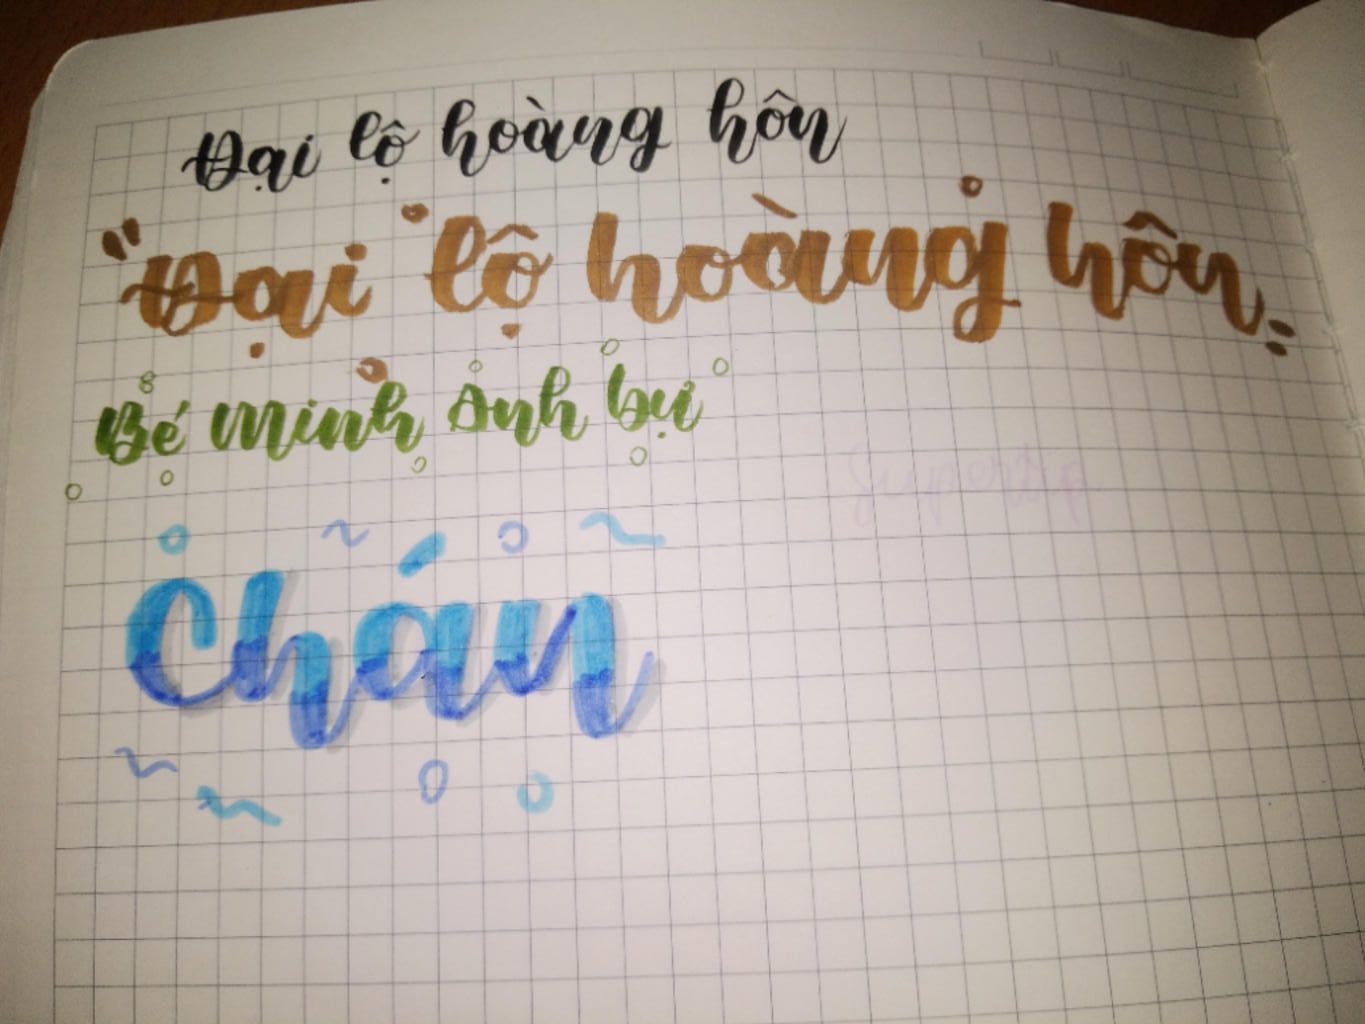 Đại lộ hoàng hôn
"Đại lộ hoàng hôn
Bé Minh Anh bự
Chán